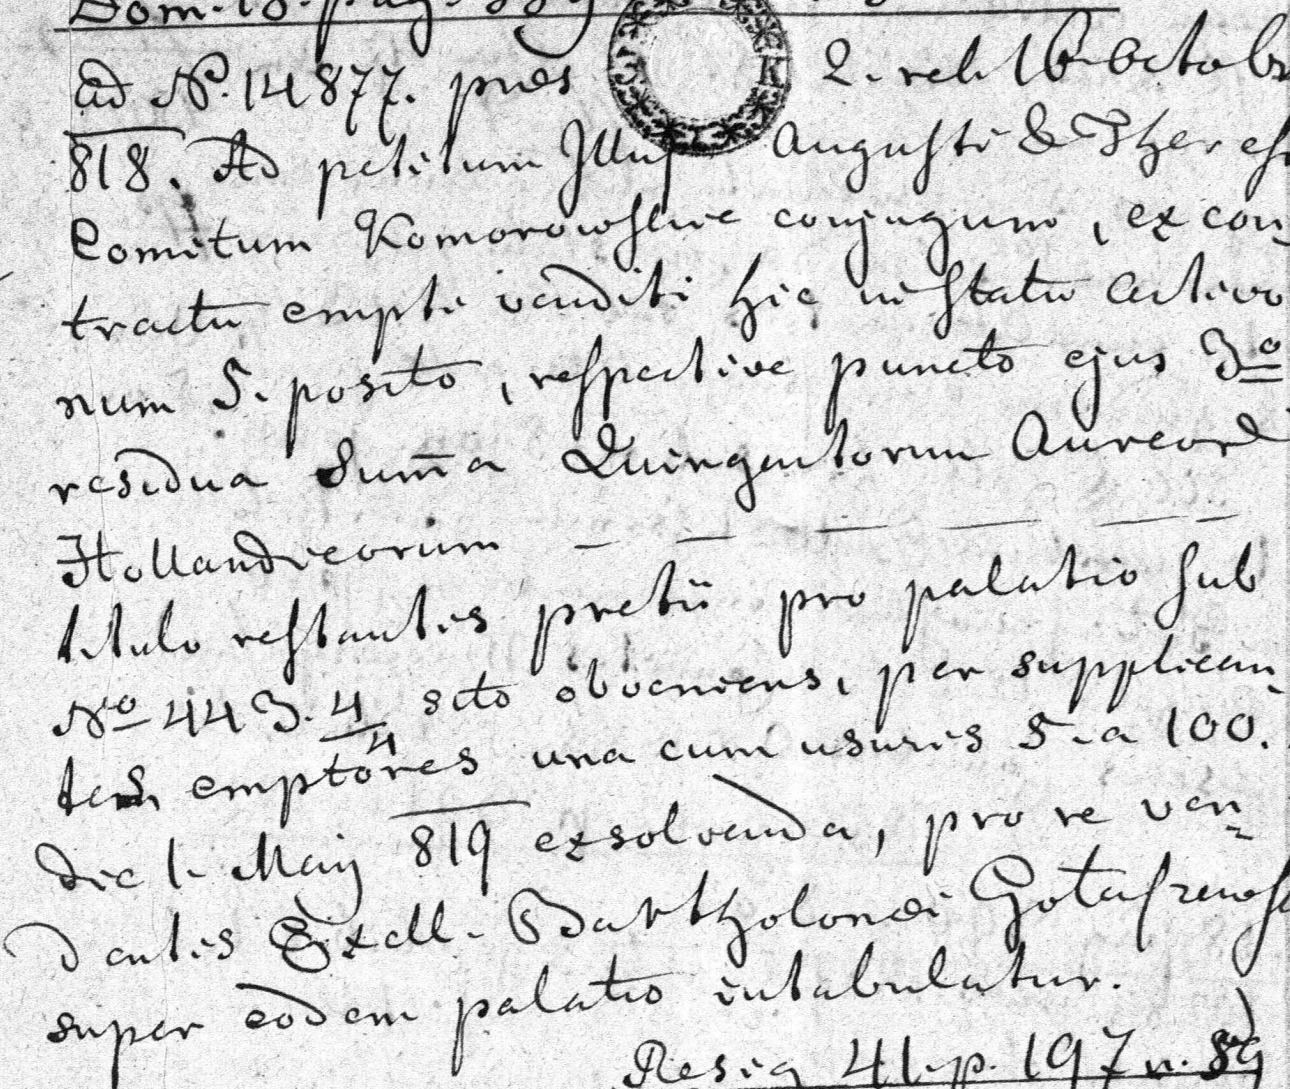 Dom. 18. pag.
ad No. 14877. præs 2. rel. 16 Octobr
818. Ad petitum Illus Augusti & Theresi
Comitum Komorowskie conjugum, ex con
tractu empti venditi hic in statu activo
num 5. posito, respective puncto ejus 3o
residua Summa Quingentorum Aureor
Hollandicorum — — — — — —
titulo restantis pretii pro palatio sub
No 443. 4/4 scto obveniens, per supplican
tes emptores una cum usuris 5. a 100.
die 1. Maij 819 exsolvenda, pro re ven
dentis Excell. Bartholomei Gołaszewsk
super eodem palatio intabulatur.
41. p. 197 n. 89